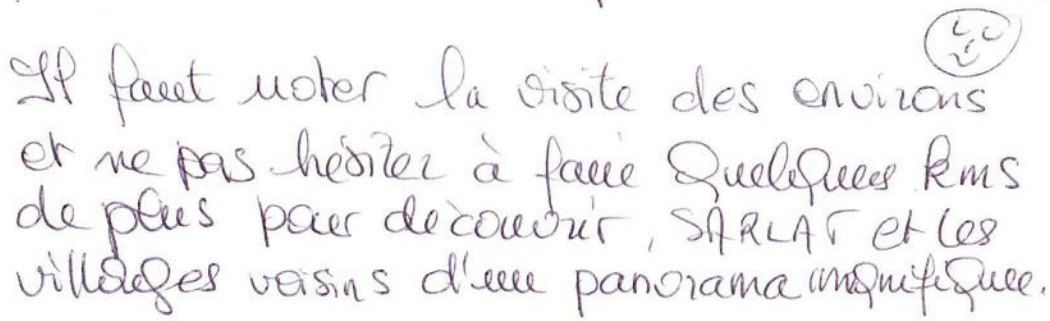 Il faut noter la visite des environs
et ne pas hésiter à faire Quelques kms
de plus pour découvrir, SARLAT et les
villages voisins d'une panorama magnifique.